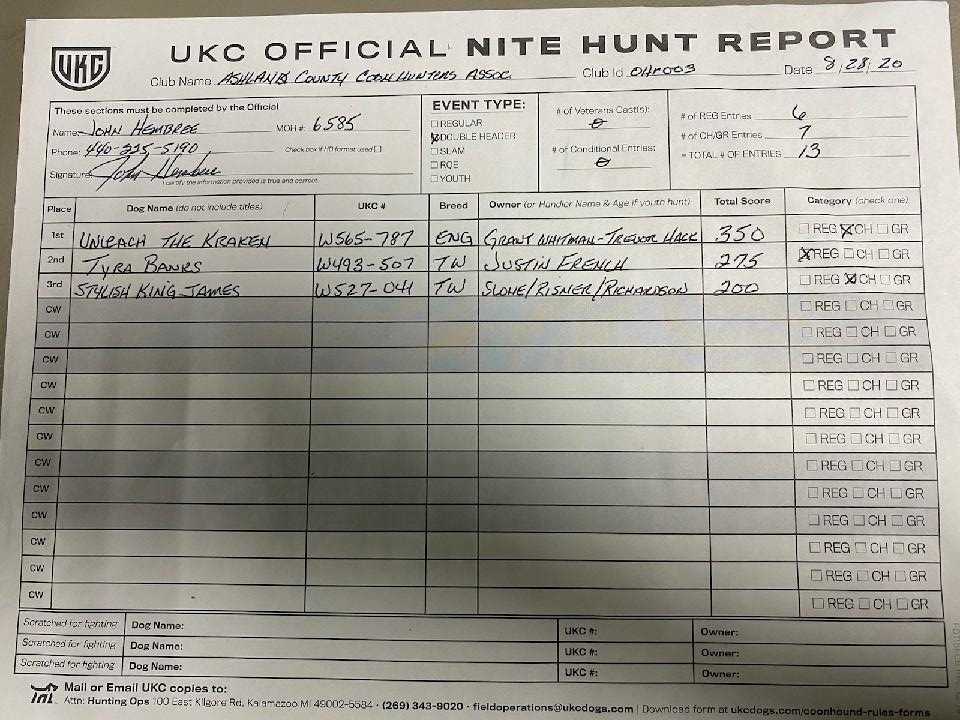 UKC OFFICIAL NITE HUNT REPORT
UKC
Club Name ASHLAND COUNTY COONHUNTERS ASSOC. Club Id OHr003 Date 8/28/20
These sections must be completed by the Official
Name: JOHN HEMBREE MOH #: 6585
Phone: 440-335-5190 Check box if HD format used ☐
Signature: John Hembree
I certify the information provided is true and correct.
EVENT TYPE:
☐ REGULAR
☒ DOUBLE HEADER
☐ SLAM
☐ RQE
☐ YOUTH
# of Veterans Cast(s):
0
# of Conditional Entries:
0
# of REG Entries 6
# of CH/GR Entries 7
= TOTAL # OF ENTRIES 13
Place Dog Name (do not include titles) UKC # Breed Owner (or Handler Name & Age if youth hunt) Total Score Category (check one)
1st UNLEACH THE KRAKEN W565-787 ENG GRANT WHITMAN-TREVOR HACK 350 ☐ REG ☒ CH ☐ GR
2nd TYRA BANKS W493-507 TW JUSTIN FRENCH 275 ☒ REG ☐ CH ☐ GR
3rd STYLISH KING JAMES W527-041 TW SLONE/RISNER/RICHARDSON 200 ☐ REG ☒ CH ☐ GR
CW ☐ REG ☐ CH ☐ GR
CW ☐ REG ☐ CH ☐ GR
CW ☐ REG ☐ CH ☐ GR
CW ☐ REG ☐ CH ☐ GR
CW ☐ REG ☐ CH ☐ GR
CW ☐ REG ☐ CH ☐ GR
CW ☐ REG ☐ CH ☐ GR
CW ☐ REG ☐ CH ☐ GR
CW ☐ REG ☐ CH ☐ GR
CW ☐ REG ☐ CH ☐ GR
CW ☐ REG ☐ CH ☐ GR
CW ☐ REG ☐ CH ☐ GR
Scratched for fighting Dog Name: UKC #: Owner:
Scratched for fighting Dog Name: UKC #: Owner:
Scratched for fighting Dog Name: UKC #: Owner:
Mail or Email UKC copies to:
Attn: Hunting Ops 100 East Kilgore Rd, Kalamazoo MI 49002-5584 • (269) 343-9020 • fieldoperations@ukcdogs.com | Download form at ukcdogs.com/coonhound-rules-forms